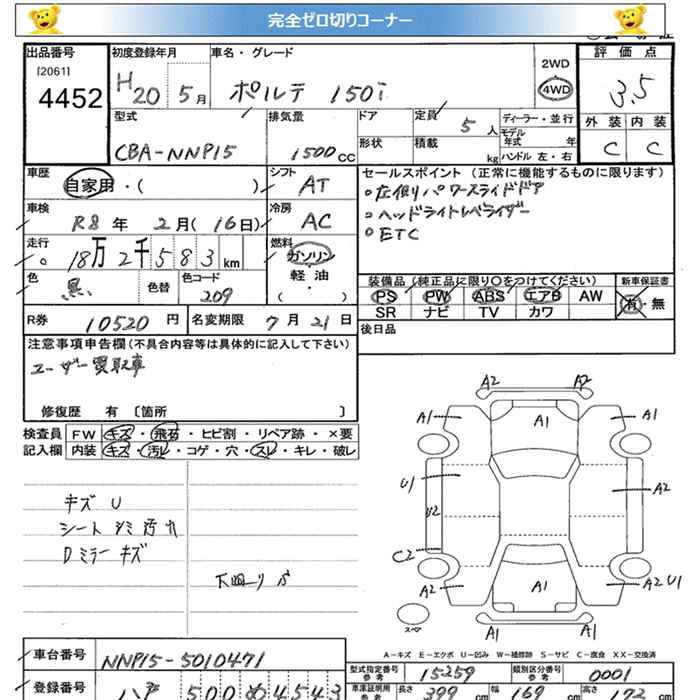 完全ゼロ切りコーナー
出品番号
[2061]
4452
初度登録年月
H20 5月
車名・グレード
ポルテ 150i
2WD
4WD
評価点
3.5
外装 内装
C C
型式
CBA-NNP15
排気量
1500cc
ドア
形状
定員
5人
積載
kg
ディーラー・並行
モデル年式 年
ハンドル 左・右
車歴
自家用・( )
シフト
AT
車検
R8年 2月(16日)
冷房
AC
走行
18万2千583km
燃料
ガソリン
軽・油
( )
色
黒
色替
色コード
209
セールスポイント(正常に機能するものに限ります)
○左側パワースライドドア
○ヘッドライトレベライザー
○ETC
装備品(純正品に限り○をつけてください)
PS PW ABS エアB AW
SR ナビ TV カワ
新車保証書
有・無
R券 10520円
名変期限 7月21日
後日品
注意事項申告欄(不具合内容等は具体的に記入して下さい)
ユーザー買取車
修復歴 有 〔箇所 〕
検査員 FW キズ・飛石・ヒビ割・リペア跡・×要
記入欄 内装 キズ・汚レ・コゲ・穴・スレ・キレ・破レ
キズ U
シート シミ 汚れ
Dミラー キズ
下回り サビ
A2 A2
A1 A1 A1
U1 A2
U2
C2
A2 A1 A2 U1
スペア
A1 A1
A-キズ E-エクボ U-凹み W-補修跡 S-サビ C-腐食 XX-交換済
車台番号 NNP15-5010471
型式指定番号 参考 15259
類別区分番号 参考 0001
登録番号 500 め 4543
車庫証明用 参考 長さ 399cm 幅 169cm 高さ 172cm